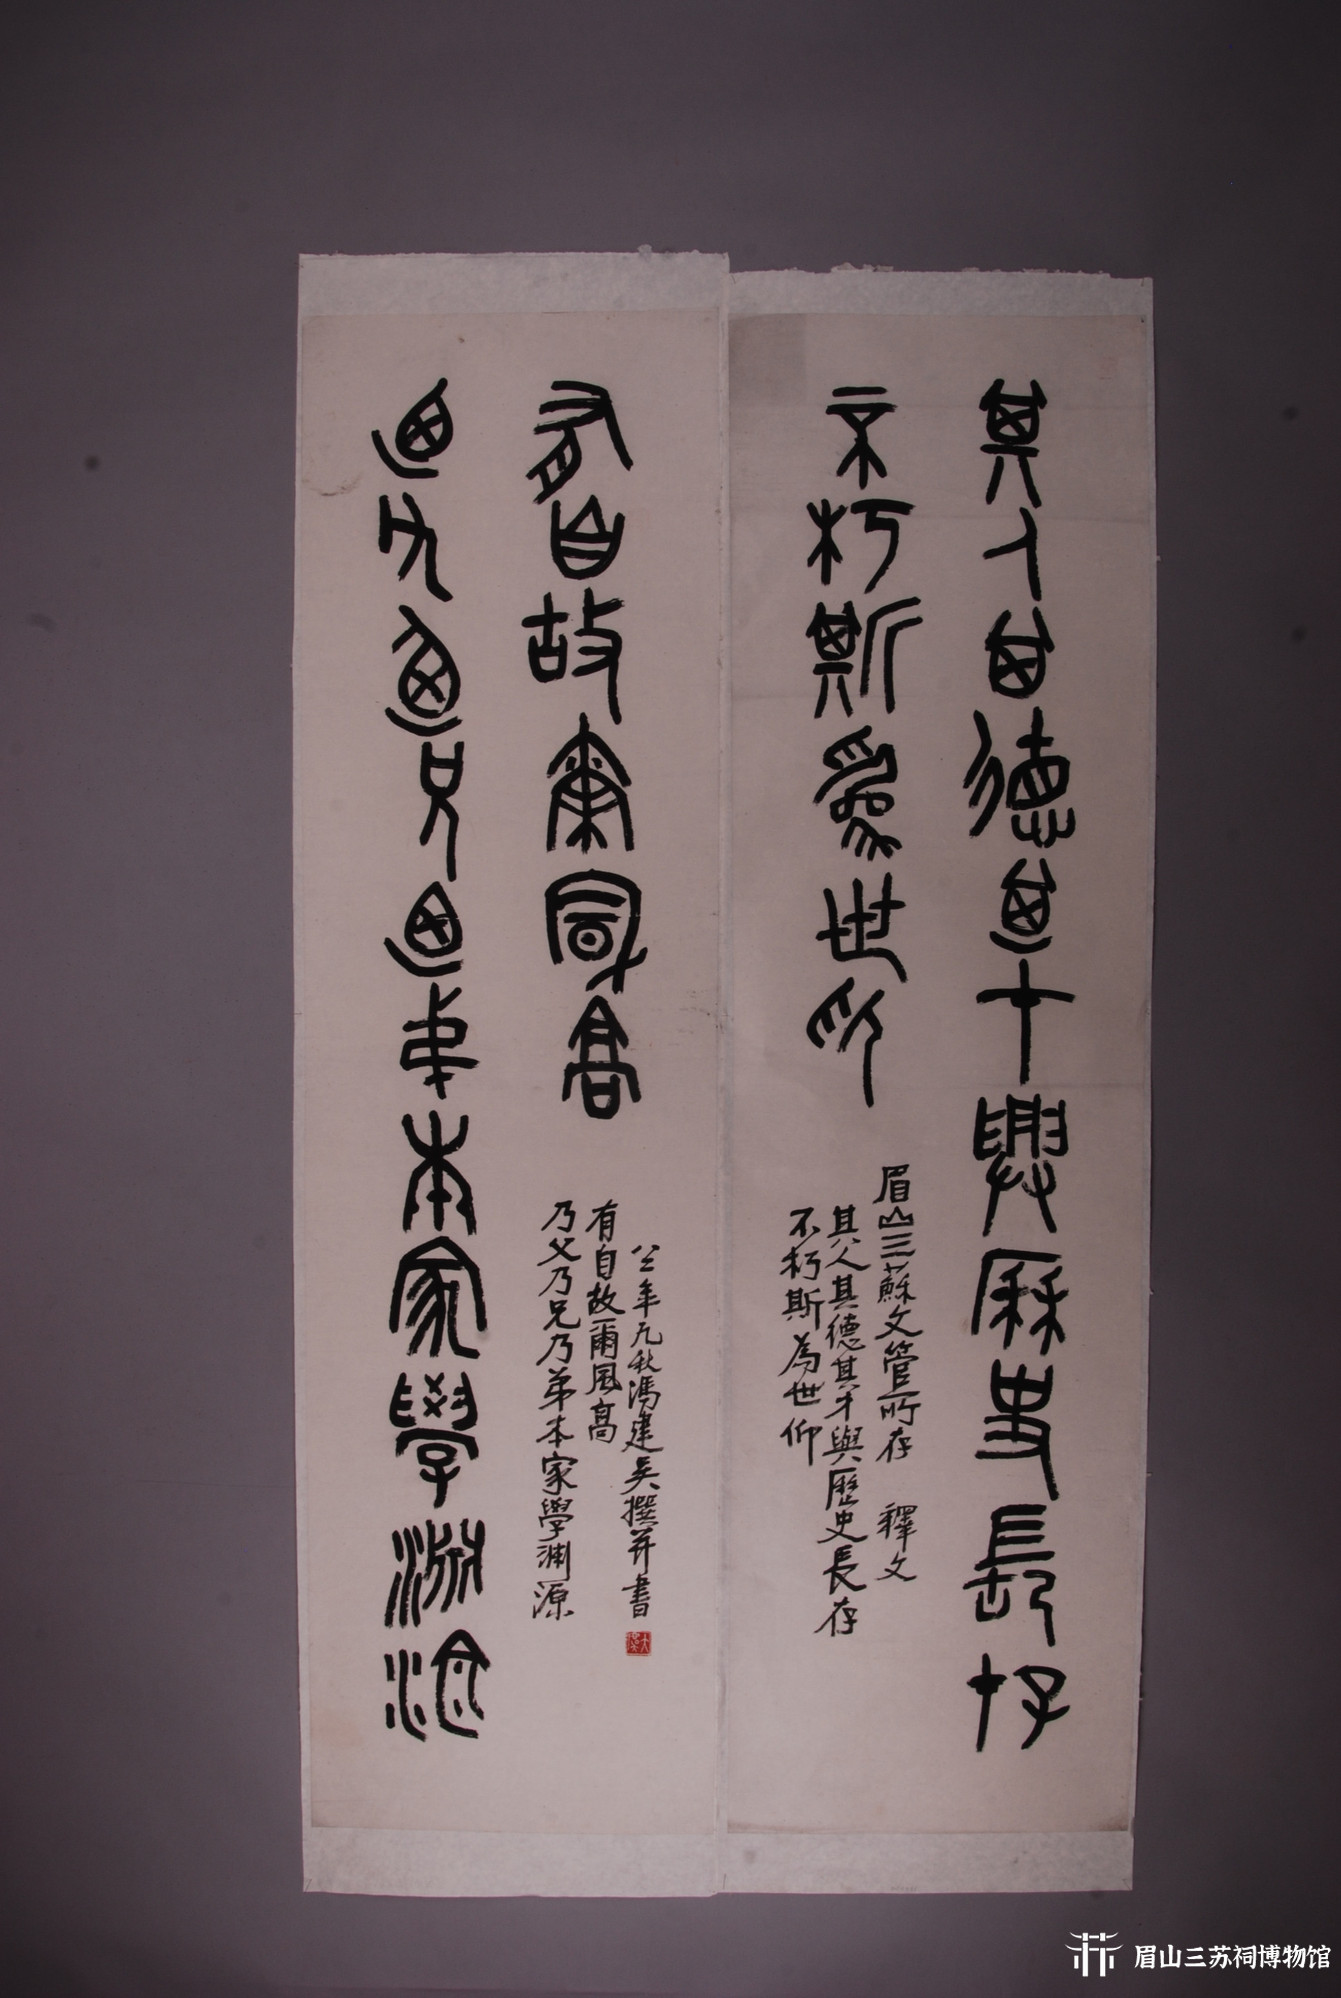 其人其德其才與歷史長存
不朽斯為世仰
眉山三蘇文管所存 釋文
其人其德其才與歷史長存
不朽斯為世仰
乃父乃兄乃弟本家學淵源
有自故爾風高
公年九秋馮建吴撰并書
有自故爾風高
乃父乃兄乃弟本家學渊源
眉山三苏祠博物馆